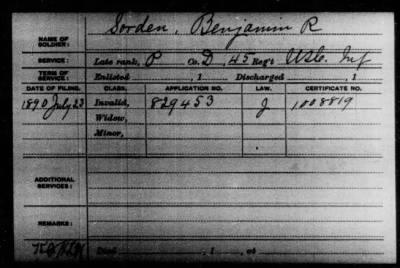 NAME OF SOLDIER: Sorden, Benjamin R
SERVICE: Late rank, P Co. D, 45 Reg't U.S.C. Inf
TERM OF SERVICE: Enlisted , 1 Discharged , 1
DATE OF FILING. CLASS. APPLICATION NO. LAW. CERTIFICATE NO.
1890 July 23 Invalid, 829453 J 1008819
Widow,
Minor,
ADDITIONAL SERVICES:
REMARKS:
Died , 1 , at